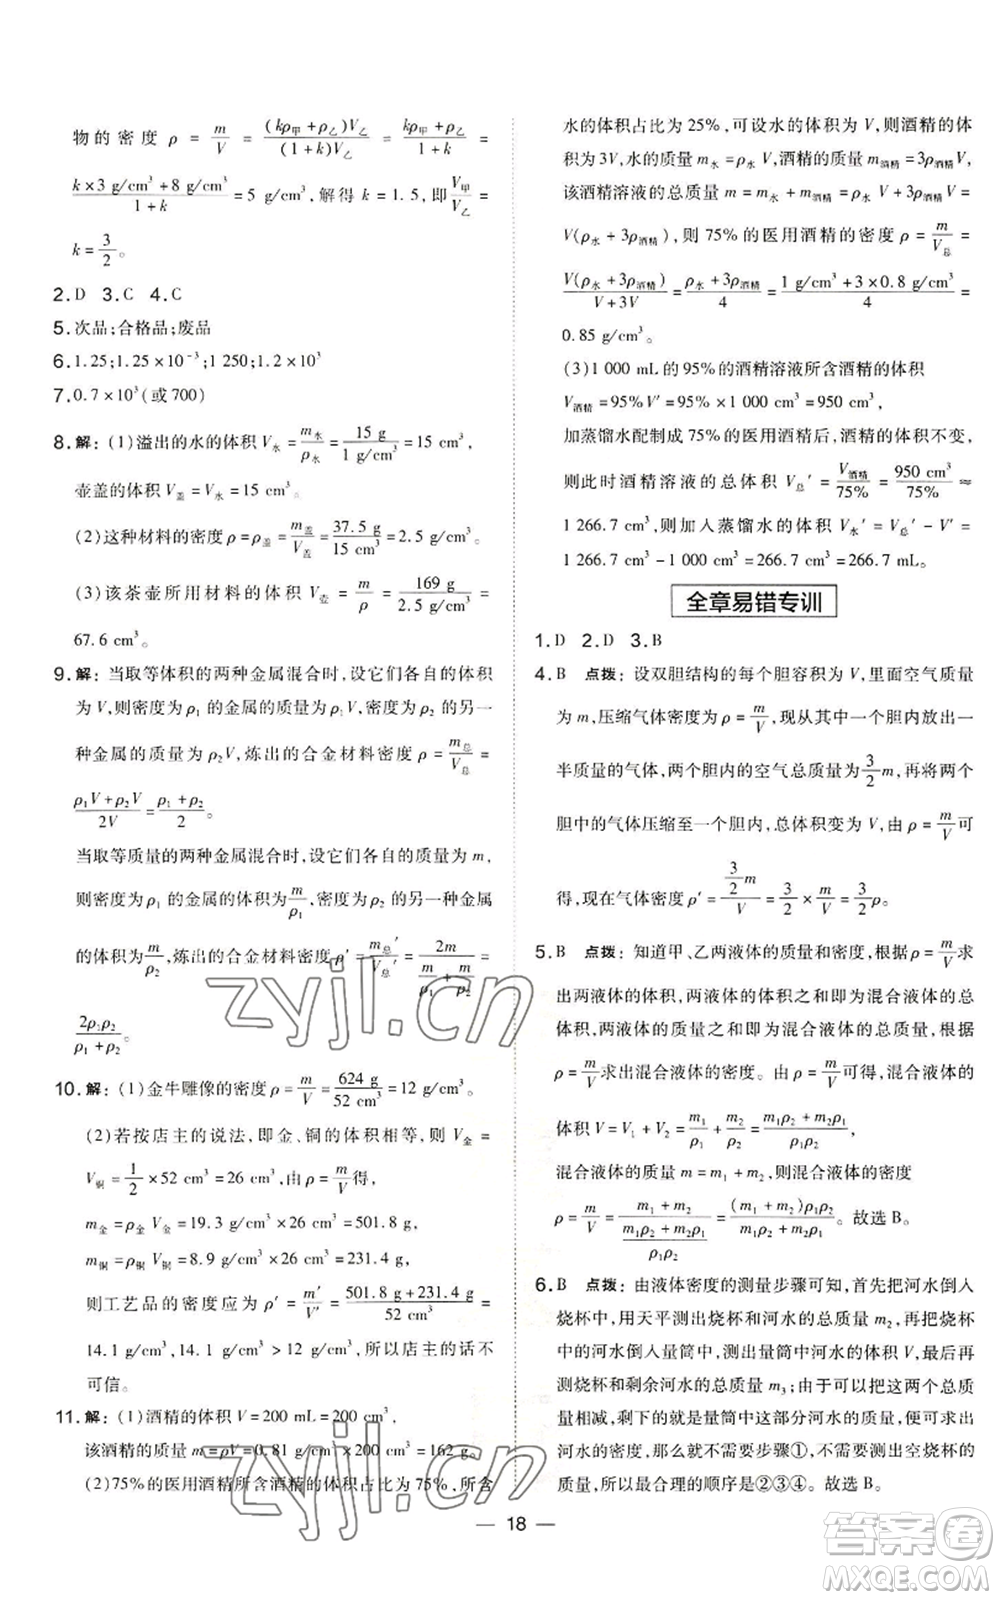 物的密度 ρ = m/V = (kρ甲+ρ乙)V乙/(1+k)V乙 = kρ甲+ρ乙/1+k =
k×3 g/cm³+8 g/cm³/1+k = 5 g/cm³，解得 k = 1.5，即 V甲/V乙 =
k = 3/2。
2. D 3. C 4. C
5. 次品；合格品；废品
6. 1.25；1.25×10⁻³；1 250；1.2×10³
7. 0.7×10³（或 700）
8. 解：(1)溢出的水的体积 V水 = m水/ρ水 = 15 g/1 g/cm³ = 15 cm³，
壶盖的体积 V盖 = V水 = 15 cm³。
(2)这种材料的密度 ρ = ρ盖 = m盖/V盖 = 37.5 g/15 cm³ = 2.5 g/cm³。
(3)该茶壶所用材料的体积 V壶 = m/ρ = 169 g/2.5 g/cm³ =
67.6 cm³。
9. 解：当取等体积的两种金属混合时，设它们各自的体积
为 V，则密度为 ρ₁ 的金属的质量为 ρ₁V，密度为 ρ₂ 的另一
种金属的质量为 ρ₂V，炼出的合金材料密度 ρ = m总/V总 =
ρ₁V+ρ₂V/2V = ρ₁+ρ₂/2。
当取等质量的两种金属混合时，设它们各自的质量为 m，
则密度为 ρ₁ 的金属的体积为 m/ρ₁，密度为 ρ₂ 的另一种金属
的体积为 m/ρ₂，炼出的合金材料密度 ρ′ = m总′/V总′ = 2m/(m/ρ₁+m/ρ₂) =
2ρ₁ρ₂/ρ₁+ρ₂。
10. 解：(1)金牛雕像的密度 ρ = m/V = 624 g/52 cm³ = 12 g/cm³。
(2)若按店主的说法，即金、铜的体积相等，则 V金 =
V铜 = 1/2 × 52 cm³ = 26 cm³，由 ρ = m/V 得，
m金 = ρ金 V金 = 19.3 g/cm³ × 26 cm³ = 501.8 g，
m铜 = ρ铜 V铜 = 8.9 g/cm³ × 26 cm³ = 231.4 g，
则工艺品的密度应为 ρ′ = m′/V′ = 501.8 g+231.4 g/52 cm³ =
14.1 g/cm³ > 12 g/cm³，所以店主的话不
可信。
11. 解：(1)酒精的体积 V = 200 mL = 200 cm³，
该酒精的质量 m = ρV = 0.81 g/cm³ × 200 cm³ = 162 g。
(2)75%的医用酒精所含酒精的体积占比为 75%，所含
水的体积占比为 25%，可设水的体积为 V，则酒精的体
积为 3V，水的质量 m水 = ρ水 V，酒精的质量 m酒精 = 3ρ酒精 V，
该酒精溶液的总质量 m = m水 + m酒精 = ρ水 V + 3ρ酒精 V =
V(ρ水 + 3ρ酒精)，则 75% 的医用酒精的密度 ρ = m/V总 =
V(ρ水 + 3ρ酒精)/V+3V = ρ水 + 3ρ酒精/4 = 1 g/cm³+3×0.8 g/cm³/4 =
0.85 g/cm³。
(3)1 000 mL 的 95% 酒精溶液所含酒精的体积
V酒精 = 95% V′ = 95% × 1 000 cm³ = 950 cm³，
加蒸馏水配制成 75% 的医用酒精后，酒精的体积不变，
则此时酒精溶液的总体积 V总′ = V酒精/75% = 950 cm³/75% ≈
1 266.7 cm³，则加入蒸馏水的体积 V水′ = V总′ − V′ =
1 266.7 cm³ − 1 000 cm³ = 266.7 cm³ = 266.7 mL。
全章易错专训
1. D 2. D 3. B
4. B 点拨：设双胆结构的每个胆容积为 V，里面空气质量
为 m，压缩气体密度为 ρ = m/V，现从一个胆内放出一
半质量的气体，两个胆内的空气总质量为 3/2 m，再将两个
胆中的气体压缩至一个胆内，总体积变为 V，由 ρ = m/V 可
得，现在气体密度 ρ′ = (3/2 m)/V = 3/2 × m/V = 3/2 ρ。
5. B 点拨：知道甲、乙两液体的质量和密度，根据 ρ = m/V 求
出两液体的体积，两液体的体积之和即为混合液体的总
体积，两液体的质量之和即为混合液体的总质量，根据
ρ = m/V 求出混合液体的密度。由 ρ = m/V 可得，混合液体的
体积 V = V₁ + V₂ = m₁/ρ₁ + m₂/ρ₂ = m₁ρ₂ + m₂ρ₁/ρ₁ρ₂，
混合液体的质量 m = m₁ + m₂，则混合液体的密度
ρ = m/V = m₁ + m₂/(m₁ρ₂ + m₂ρ₁/ρ₁ρ₂) = (m₁ + m₂)ρ₁ρ₂/m₁ρ₂ + m₂ρ₁。故选 B。
6. B 点拨：由液体密度的测量步骤可知，首先把河水倒入
烧杯中，用天平测出烧杯和河水的总质量 m₂，再把烧杯
中的河水倒入量筒中，测出量筒中河水的体积 V，最后再
测烧杯和剩余河水的总质量 m₃；由于可以把这两个总质
量相减，剩下的就是量筒中这部分河水的质量，从而求出
河水的密度，那么就不需要步骤①，不需要测出空烧杯的质
量，所以最合理的顺序是②③④。故选 B。
18
zyjl.cn
zyjl.cn
答案圈
MXQE.COM